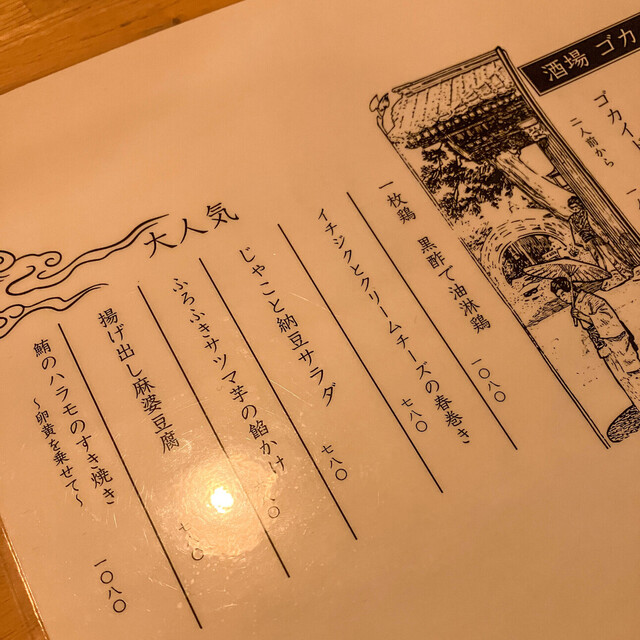 酒場 ゴカ
ゴカイ
二人前から
大人気
一枚鶏 黒酢で油淋鶏 一〇八〇
イチジクとクリームチーズの春巻き 七八〇
じゃこと納豆サラダ 七八〇
ふろふきサツマ芋の餡かけ 〇
揚げ出し麻婆豆腐 〇
鮪のハラモのすき焼き
～卵黄を乗せて～
一〇八〇